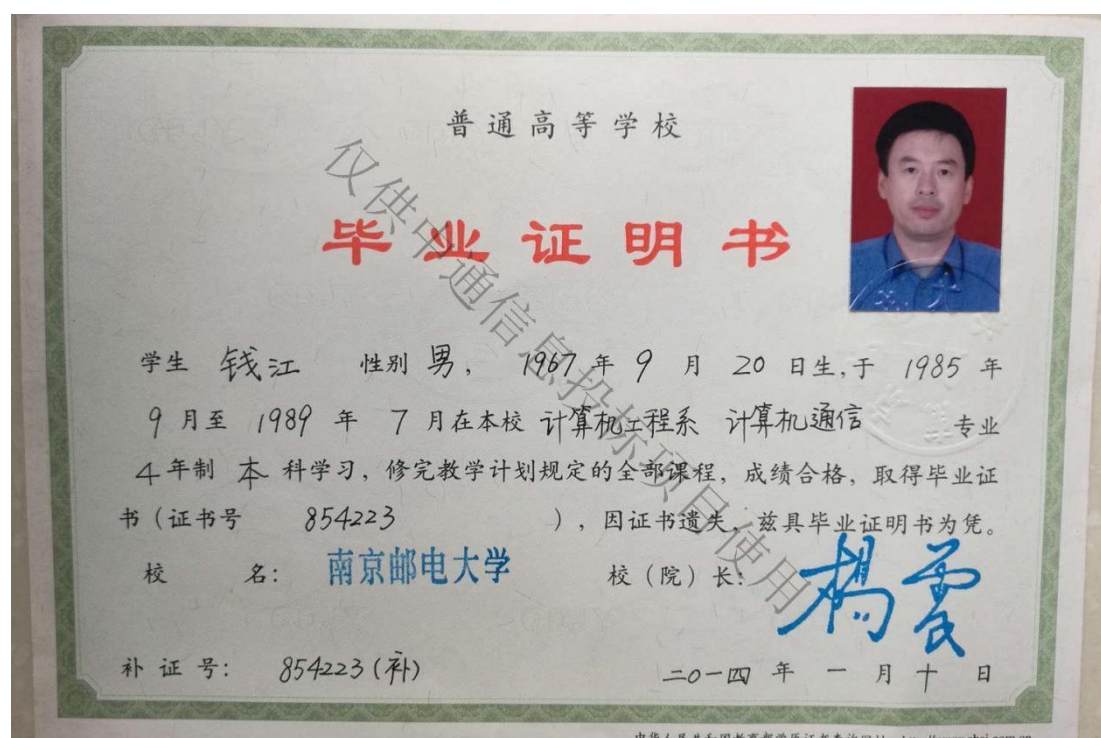 普通高等学校
毕业证明书
学生 钱江 性别 男， 1967 年 9 月 20 日生，于 1985 年
9 月至 1989 年 7 月在本校 计算机工程系 计算机通信 专业
4 年制 本 科学习，修完教学计划规定的全部课程，成绩合格，取得毕业证
书（证书号 854223 ），因证书遗失，兹具毕业证明书为凭。
校 名： 南京邮电大学 校（院）长： 杨震
补 证 号： 854223（补） 二〇一四 年 一 月 十 日
仅供中通信息投标项目使用